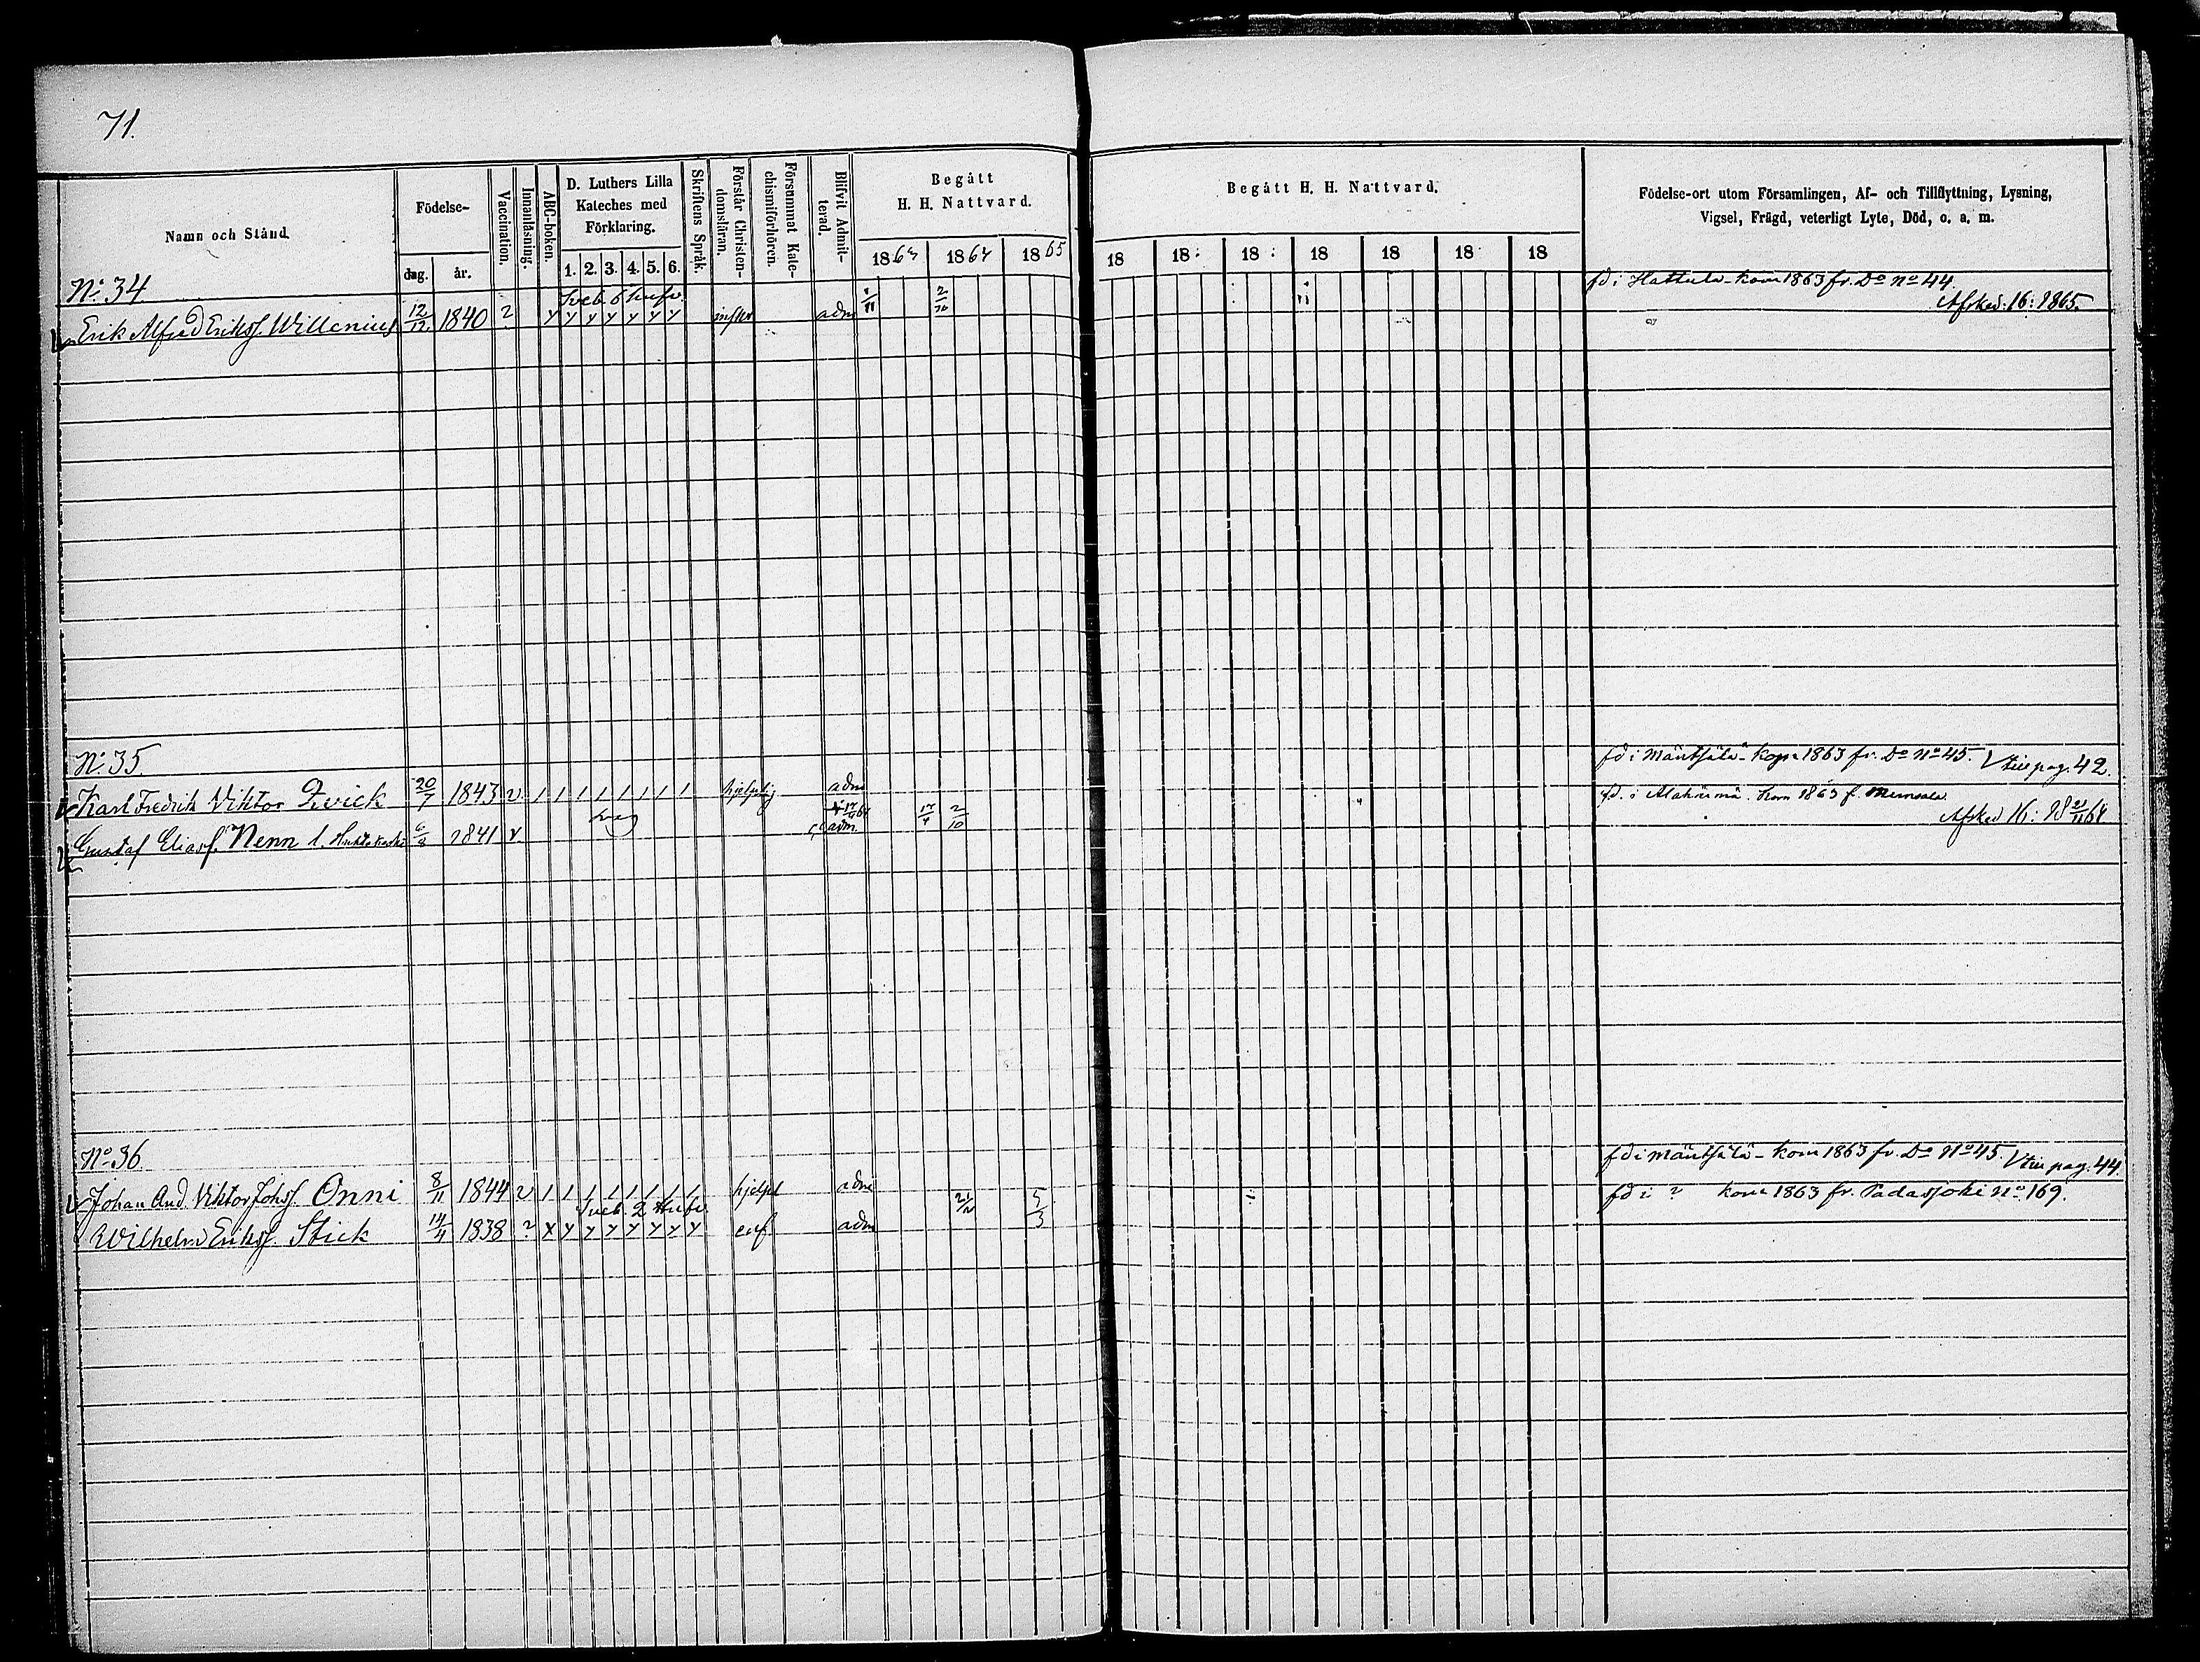 71.
Namn och Stånd.
Födelse-
dag. år.
Vaccination.
Innanläsning.
ABC-boken.
D. Luthers Lilla
Kateches med
Förklaring.
1. 2. 3. 4. 5. 6.
Skriftens Språk.
Förstår Christen-
domsläran.
Försummat Kate-
chismiförhören.
Blifvit Admit-
terad.
Begått
H. H. Nattvard.
1863 1864 1865
Begått H. H. Nattvard.
18 18 18 18 18 18 18
Födelse-ort utom Församlingen, Af- och Tillflyttning, Lysning,
Vigsel, Frägd, veterligt Lyte, Död, o. a. m.
No 34
fd i Hattula kom 1863 fr. Do No 44.
Sveb. 6 hufv.
Erik Alfred Erikss. Willenius 12/12 1840 ? adm 2/10 Afsked: 16: 1865.
No 35.
fd i Mäntsälä kom 1863 fr. Do No 45. pag. 42.
Karl Fredrik Viktor Qvick 20/7 1843 v 1 1 1 1 1 1 1 1 hjelplig adm
kom 1863 f.
Gustaf Eliass. Nenn 6/3 1841 v. adm. 17/4 2/10 Afsked 16: 18 21/11 64
No 36.
fd i Mäntsälä - kom 1863 fr. Do No 45. pag. 44.
Johan And. Viktor Johss. Onni 8/11 1844 v 1 1 1 1 1 1 1 1 hjelpl adm
fd i ? kom 1863 fr. Padasjoki No 169.
Sveb. 2 Hufv.
Wilhelm Erikss. Stick 14/4 1838 ? adm 5/3